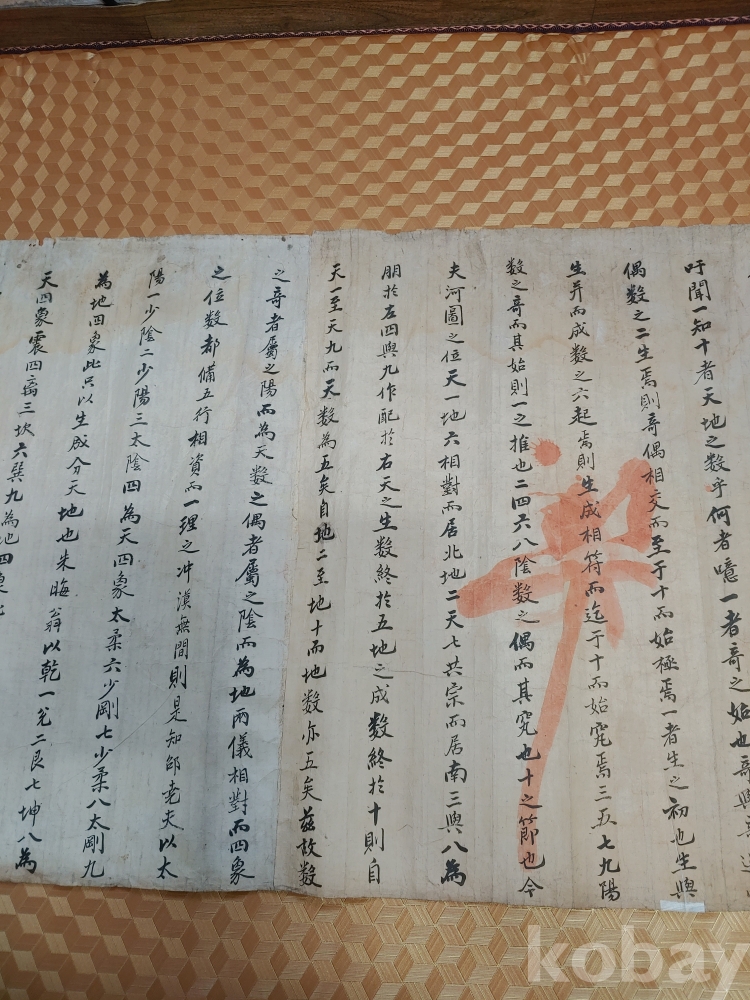 吁聞一知十者天地之數乎何者噫一者竒之始也竒與
偶數之二生焉則竒偶相交而至于十而始極焉一者生之初也生與
生并而成數之六起焉則生成相符而迄于十而始究焉三五七九陽
數之竒而其始則一之推也二四六八陰數之偶而其究也十之節也今
夫河圖之位天一地六相對而居北地二天七共宗而居南三與八為
朋於左四與九作配於右天之生數終於五地之成數終於十則自
天一至天九而天數為五矣自地二至地十而地數亦五矣茲故數
之竒者屬之陽而為天數之偶者屬之陰而為地兩儀相對而四象
之位數都備五行相資而一理之冲漠無間則是知邵堯夫以太
陽一少陰二少陽三太陰四為天四象太柔六少剛七少柔八太剛九
為地四象此只以生成分天地也朱晦翁以乾一兌二艮七坤八為
天四象震四离三坎六巽九為地四象
kobay